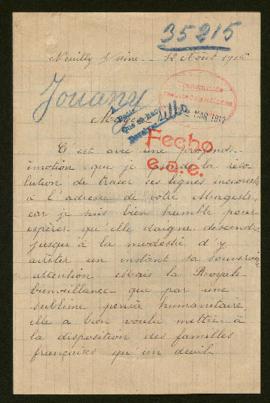 35215
Neuilly s/ Seine
Jouany
Fecho
e.o.e.
C'est avec une profonde
émotion que je prends la réso-
lution de tracer ces lignes
à l'adresse de votre Majesté,
car je suis bien humble pour
espérer qu'elle daigne descendre
jusqu'à la modestie d'y
arrêter un instant sa
attention mais la Royale
bienveillance que par une
sublime pensée humanitaire
elle a bien voulu mettre à
la disposition des familles
françaises qu'un deuil